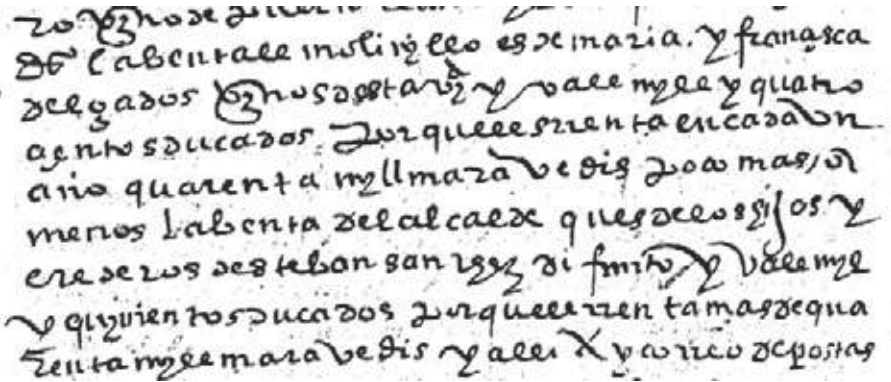 la bentale molinyllo es de maria. y francisca
delgados vz̃nos desta vª y vale myll y quatro
çientos ducados porquele rrenta en cada vn
año quarenta myll maravedis poco mas o
menos la benta del alcalde ques de los hijos y
erederos de esteban sanchez difunto y vale myll
y quinientos ducados porquele rrenta mas de qua
renta myll maravedis y alli correo de postas